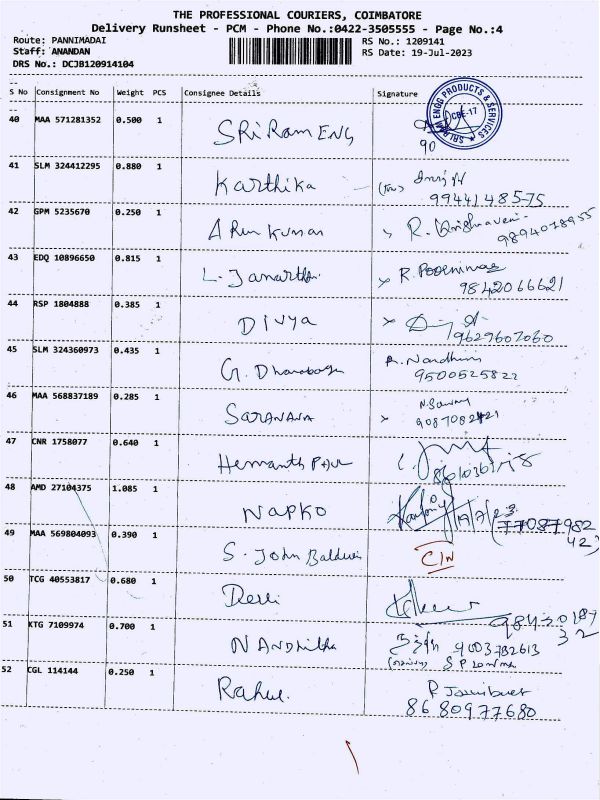 THE PROFESSIONAL COURIERS, COIMBATORE
Delivery Runsheet - PCM - Phone No.:0422-3505555 - Page No.:4
Route: PANNIMADAI
RS No.: 1209141
Staff: ANANDAN
RS Date: 19-Jul-2023
DRS No.: DCJB120914104
S No Consignment No Weight PCS Consignee Details Signature
40 MAA 571281352 0.500 1 SRi Ram ENG
SRI RAM ENGG PRODUCTS & SERVICES CBE-17
90
41 SLM 324412295 0.880 1 Karthika
9944148575
42 GPM 5235670 0.250 1 ARun Kumar R. Krishnaveni
9894078955
43 EDQ 10896650 0.815 1 L. Janartha
R. Poornima
9842066621
44 RSP 1804888 0.385 1 Divya
9629607060
45 SLM 324360973 0.435 1 G. A. Nandhini
9500525822
46 MAA 568837189 0.285 1 SARANANA
9087082421
47 CNR 1758077 0.640 1 Hemanth
48 AMD 27104375 1.085 1 NAPKO
19/7/23
(77087982
42)
49 MAA 569804093 0.390 1 S. John Baldwin C/N
50 TCG 40553817 0.680 1 Devi
98430187
32
51 KTG 7109974 0.700 1 NANdhitha
9003782613
52 CGL 114144 0.250 1 Rahul.
8680977680